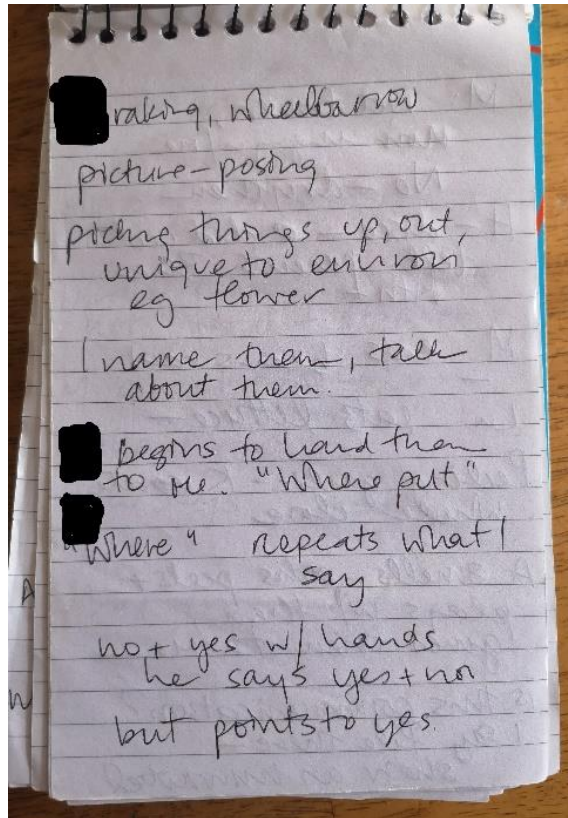 raking, wheelbarrow
picture-posing
picking things up, out,
unique to environ
eg flower
I name them, talk
about them.
begins to hand them
to me. "Where put"
"Where" repeats what I
say
no + yes w/ hands
he says yes + no
but points to yes.